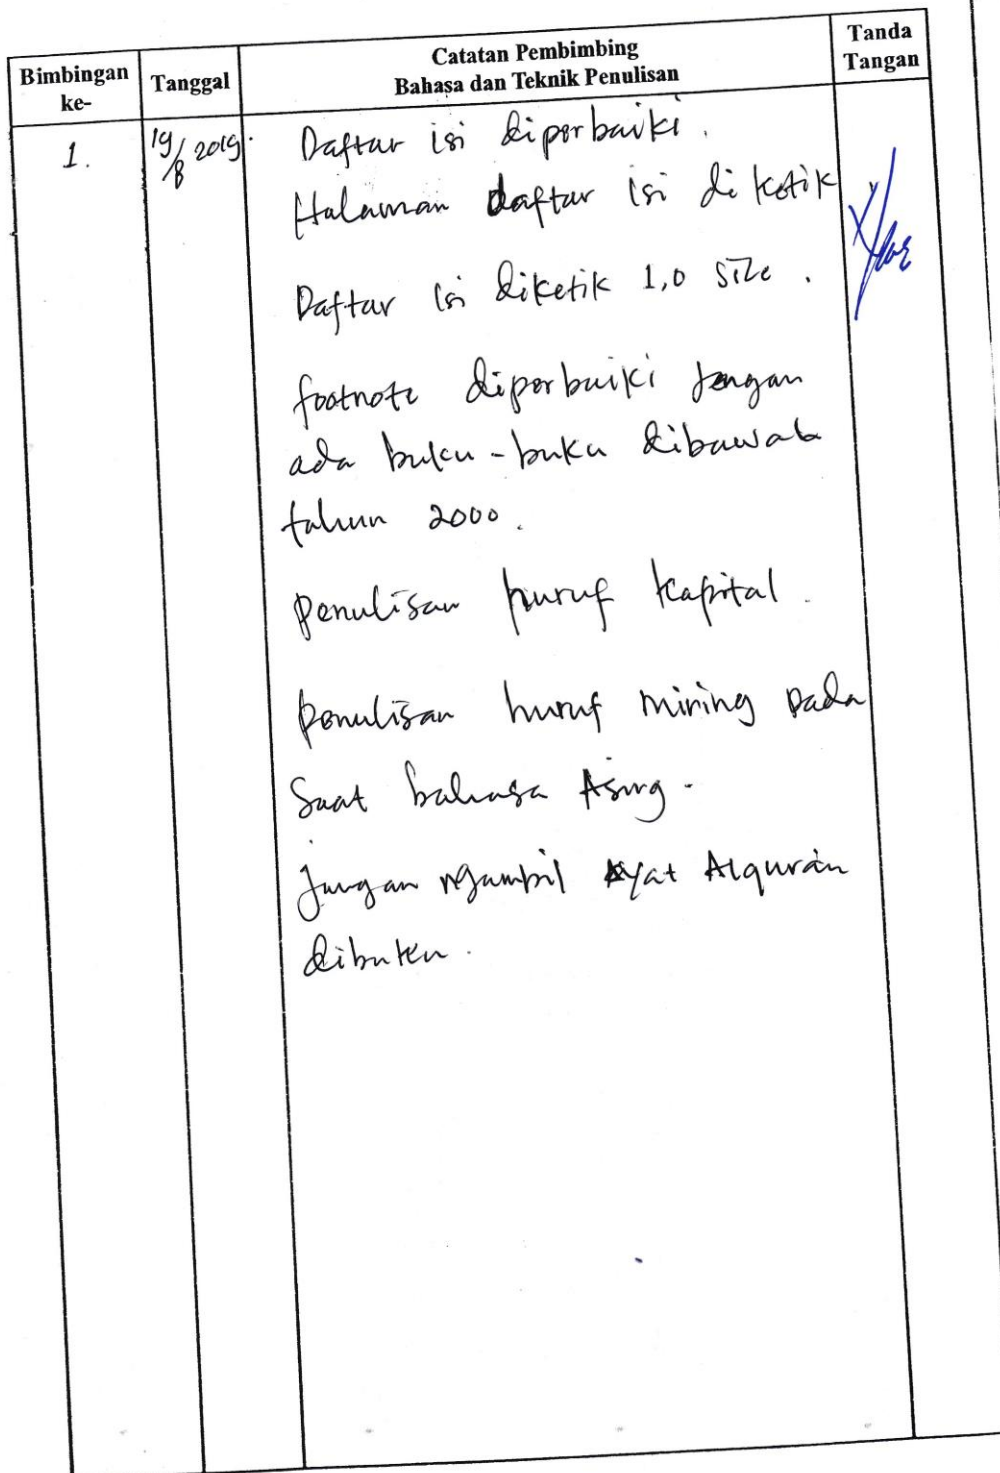 Bimbingan ke-
Tanggal
Catatan Pembimbing
Bahasa dan Teknik Penulisan
Tanda Tangan
1.
19/8 2019.
Daftar isi diperbaiki.
Halaman daftar isi di ketik
Daftar isi diketik 1,0 size.
footnote diperbaiki jangan
ada buku-buku dibawah
tahun 2000.
penulisan huruf kapital.
penulisan huruf miring pada
saat bahasa Asing.
jangan ngambil Ayat Alqurán
dibuku.